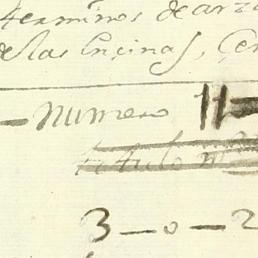 terminos de arz
delas Encinas, Cer
– numero 11
titulo n
3 – 0 – 2